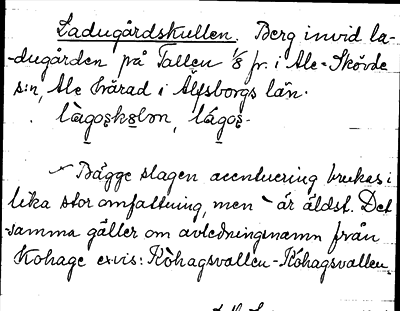 Ladugårdskullen. Berg invid la-
-dugården på Tallen 1/8 fr. i Ale-Skövde
s:n, Ale härad i Älfsborgs län.
Bägge slagen accentuering brukas i
lika stor omfattning, men ` är äldst. Det
samma gäller om avledningsnamn från
Kohage exvis: Kòhagsvallen - Kóhagsvallen.